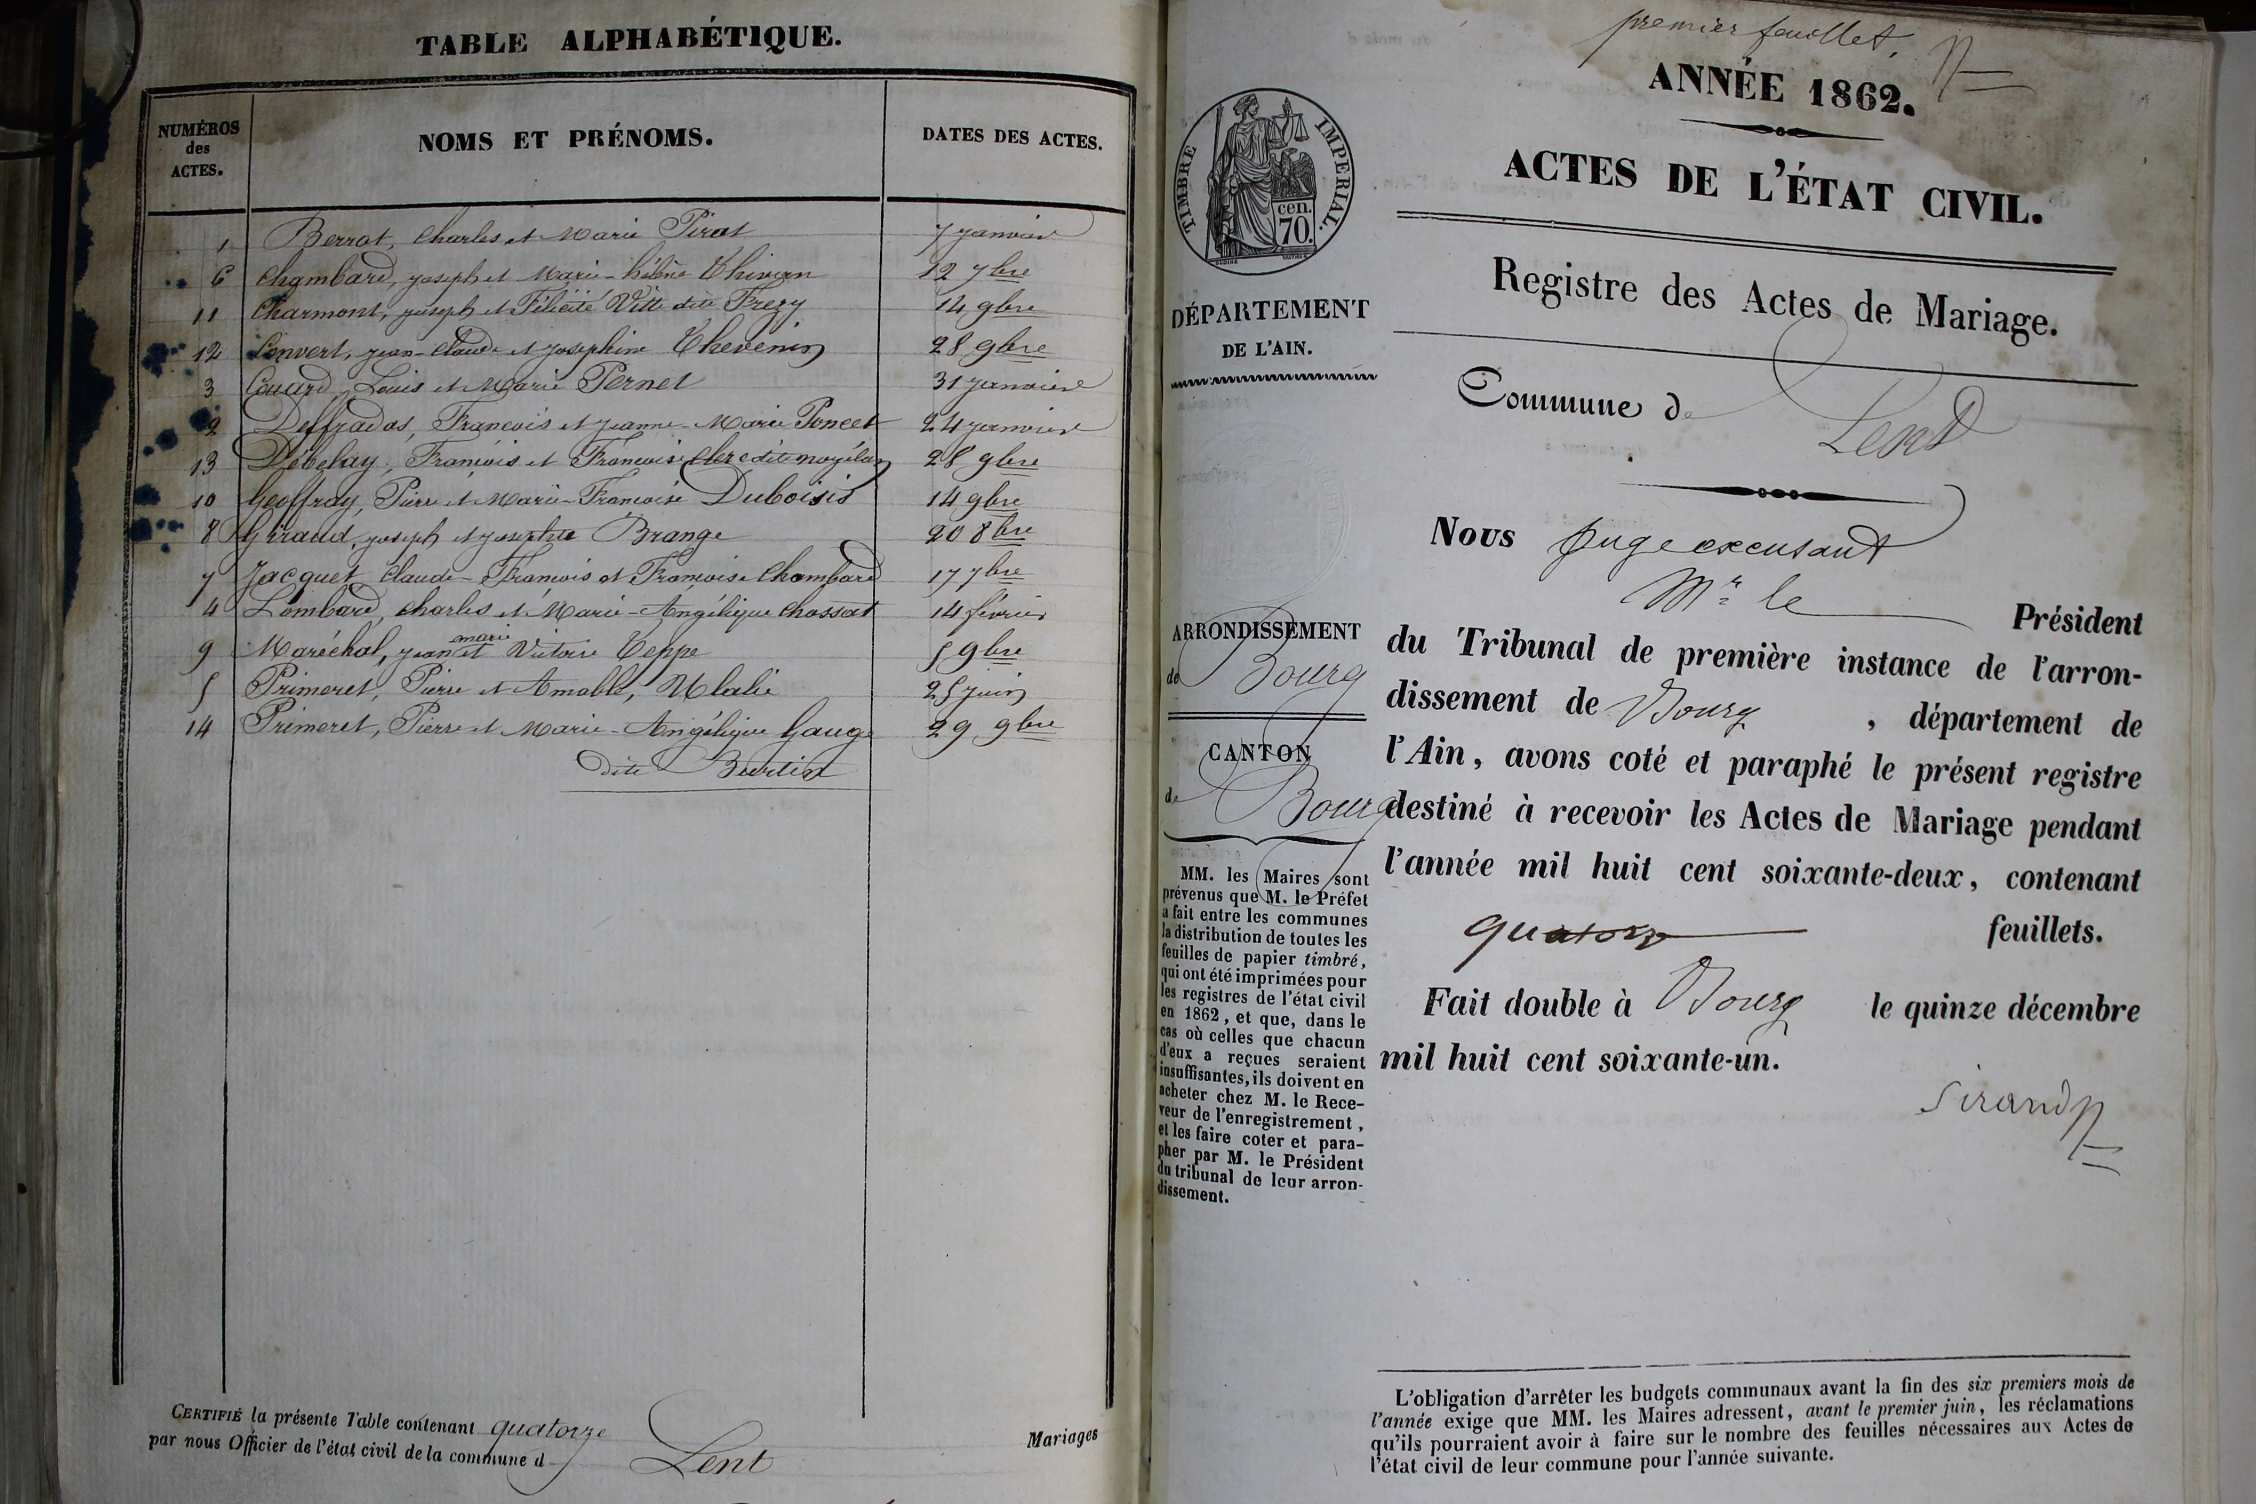 TABLE ALPHABÉTIQUE.
NUMÉROS des ACTES. NOMS ET PRÉNOMS. DATES DES ACTES.
1 Berrot, Charles et Marie Pirat 7 janvier
6 Chambard, joseph et Marie-hélène Thivan 12 7bre
11 Charmont, joseph et Félicité Vitte dite Frezy 14 9bre
12 Convert, jean-Claude et josephine Thevenin 28 9bre
3 Cuard, Louis et Marie Pernet 31 janvier
2 Deffradas, Francois et jeanne-Marie Poncet 24 janvier
13 Débelay, François et Françoise Clerc dite 28 9bre
10 Geoffray, Pierre et Marie-Francoise Duboisis 14 9bre
8 Giraud, joseph et josephte Brange 20 8bre
7 Jacquet Claude-François et Françoise Chambard 17 7bre
4 Lombard, Charles et Marie-Angélique Chossat 14 février
9 Maréchal, jean marie et Victoire Teppe 5 9bre
5 Primeret, Pierre et Amable, Ulalie 25 juin
14 Primeret, Pierre et Marie-Angélique Gauge 29 9bre
dite Burtin
CERTIFIÉ la présente Table contenant quatorze Mariages
par nous Officier de l'état civil de la commune d Lent
premier feuillet.
ANNÉE 1862.
TIMBRE IMPERIAL.
cen.
70.
ACTES DE L'ÉTAT CIVIL.
Registre des Actes de Mariage.
DÉPARTEMENT
DE L'AIN.
Commune de Lent
ARRONDISSEMENT
de Bourg
CANTON
de Bourg
MM. les Maires sont
prévenus que M. le Préfet
a fait entre les communes
la distribution de toutes les
feuilles de papier timbré,
qui ont été imprimées pour
les registres de l'état civil
en 1862, et que, dans le
cas où celles que chacun
d'eux a reçues seraient
insuffisantes, ils doivent en
acheter chez M. le Rece-
veur de l'enregistrement,
et les faire coter et para-
pher par M. le Président
du tribunal de leur arron-
dissement.
Nous juge excusant
Mr le Président
du Tribunal de première instance de l'arron-
dissement de Bourg, département de
l'Ain, avons coté et paraphé le présent registre
destiné à recevoir les Actes de Mariage pendant
l'année mil huit cent soixante-deux, contenant
quatorze feuillets.
Fait double à Bourg le quinze décembre
mil huit cent soixante-un.
Sirand
L'obligation d'arrêter les budgets communaux avant la fin des six premiers mois de
l'année exige que MM. les Maires adressent, avant le premier juin, les réclamations
qu'ils pourraient avoir à faire sur le nombre des feuilles nécessaires aux Actes de
l'état civil de leur commune pour l'année suivante.